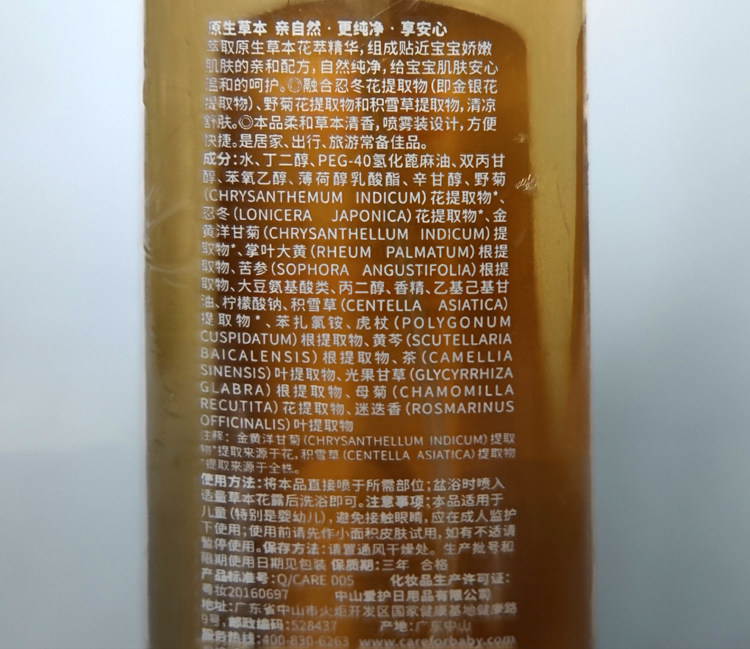 原生草本 亲自然·更纯净·享安心
萃取原生草本花萃精华，组成贴近宝宝娇嫩
肌肤的亲和配方，自然纯净，给宝宝肌肤安心
温和的呵护。◎融合忍冬花提取物（即金银花
提取物）、野菊花提取物和积雪草提取物，清凉
舒肤。◎本品柔和草本清香，喷雾装设计，方便
快捷。是居家、出行、旅游常备佳品。
成分：水、丁二醇、PEG-40氢化蓖麻油、双丙甘
醇、苯氧乙醇、薄荷醇乳酸酯、辛甘醇、野菊
（CHRYSANTHEMUM INDICUM）花提取物*、
忍冬（LONICERA JAPONICA）花提取物*、金
黄洋甘菊（CHRYSANTHELLUM INDICUM）提
取物*、掌叶大黄（RHEUM PALMATUM）根提
取物、苦参（SOPHORA ANGUSTIFOLIA）根提
取物、大豆氨基酸类、丙二醇、香精、乙基己基甘
油、柠檬酸钠、积雪草（CENTELLA ASIATICA）
提取物*、苯扎氯铵、虎杖（POLYGONUM
CUSPIDATUM）根提取物、黄芩（SCUTELLARIA
BAICALENSIS）根提取物、茶（CAMELLIA
SINENSIS）叶提取物、光果甘草（GLYCYRRHIZA
GLABRA）根提取物、母菊（CHAMOMILLA
RECUTITA）花提取物、迷迭香（ROSMARINUS
OFFICINALIS）叶提取物
注释：金黄洋甘菊（CHRYSANTHELLUM INDICUM）提取
物*提取来源于花，积雪草（CENTELLA ASIATICA）提取物
*提取来源于全株。
使用方法：将本品直接喷于所需部位；盆浴时喷入
适量草本花露后洗浴即可。注意事项：本品适用于
儿童（特别是婴幼儿），避免接触眼睛，应在成人监护
下使用；使用前请先作小面积皮肤试用，如有不适请
暂停使用。保存方法：请置通风干燥处。生产批号和
限期使用日期见包装 保质期：三年 合格
产品标准号：Q/CARE 005 化妆品生产许可证：
粤妆20160697 中山爱护日用品有限公司
地址：广东省中山市火炬开发区国家健康基地健康路
9号，邮政编码：528437 产地：广东中山
服务热线：400-830-6263 www.careforbaby.com